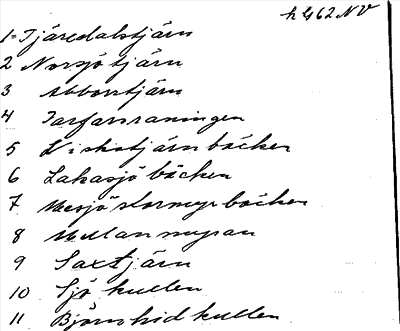 h G 62 NV
1 Tjäredalstjärn
2 Norsjötjärn
3 Abborrtjärn
4 Tarfarsraningen
5 Fiskatjärnbäcken
6 Lakasjöbäcken
7 Mesjöstormyrbäcken
8 Mellanmyran
9 Saxtjärn
10 Sjökullen
11 Björnhidkullen